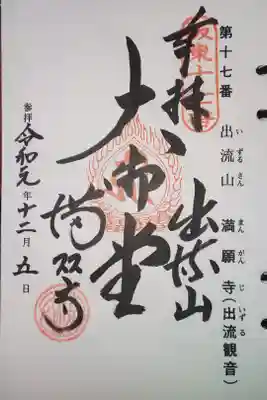 第十七番 出流山 満願寺(出流観音)
いずるさん まんがんじ いずる
奉拝 出流山
大御堂
満願寺
参拝 令和元年十二月五日